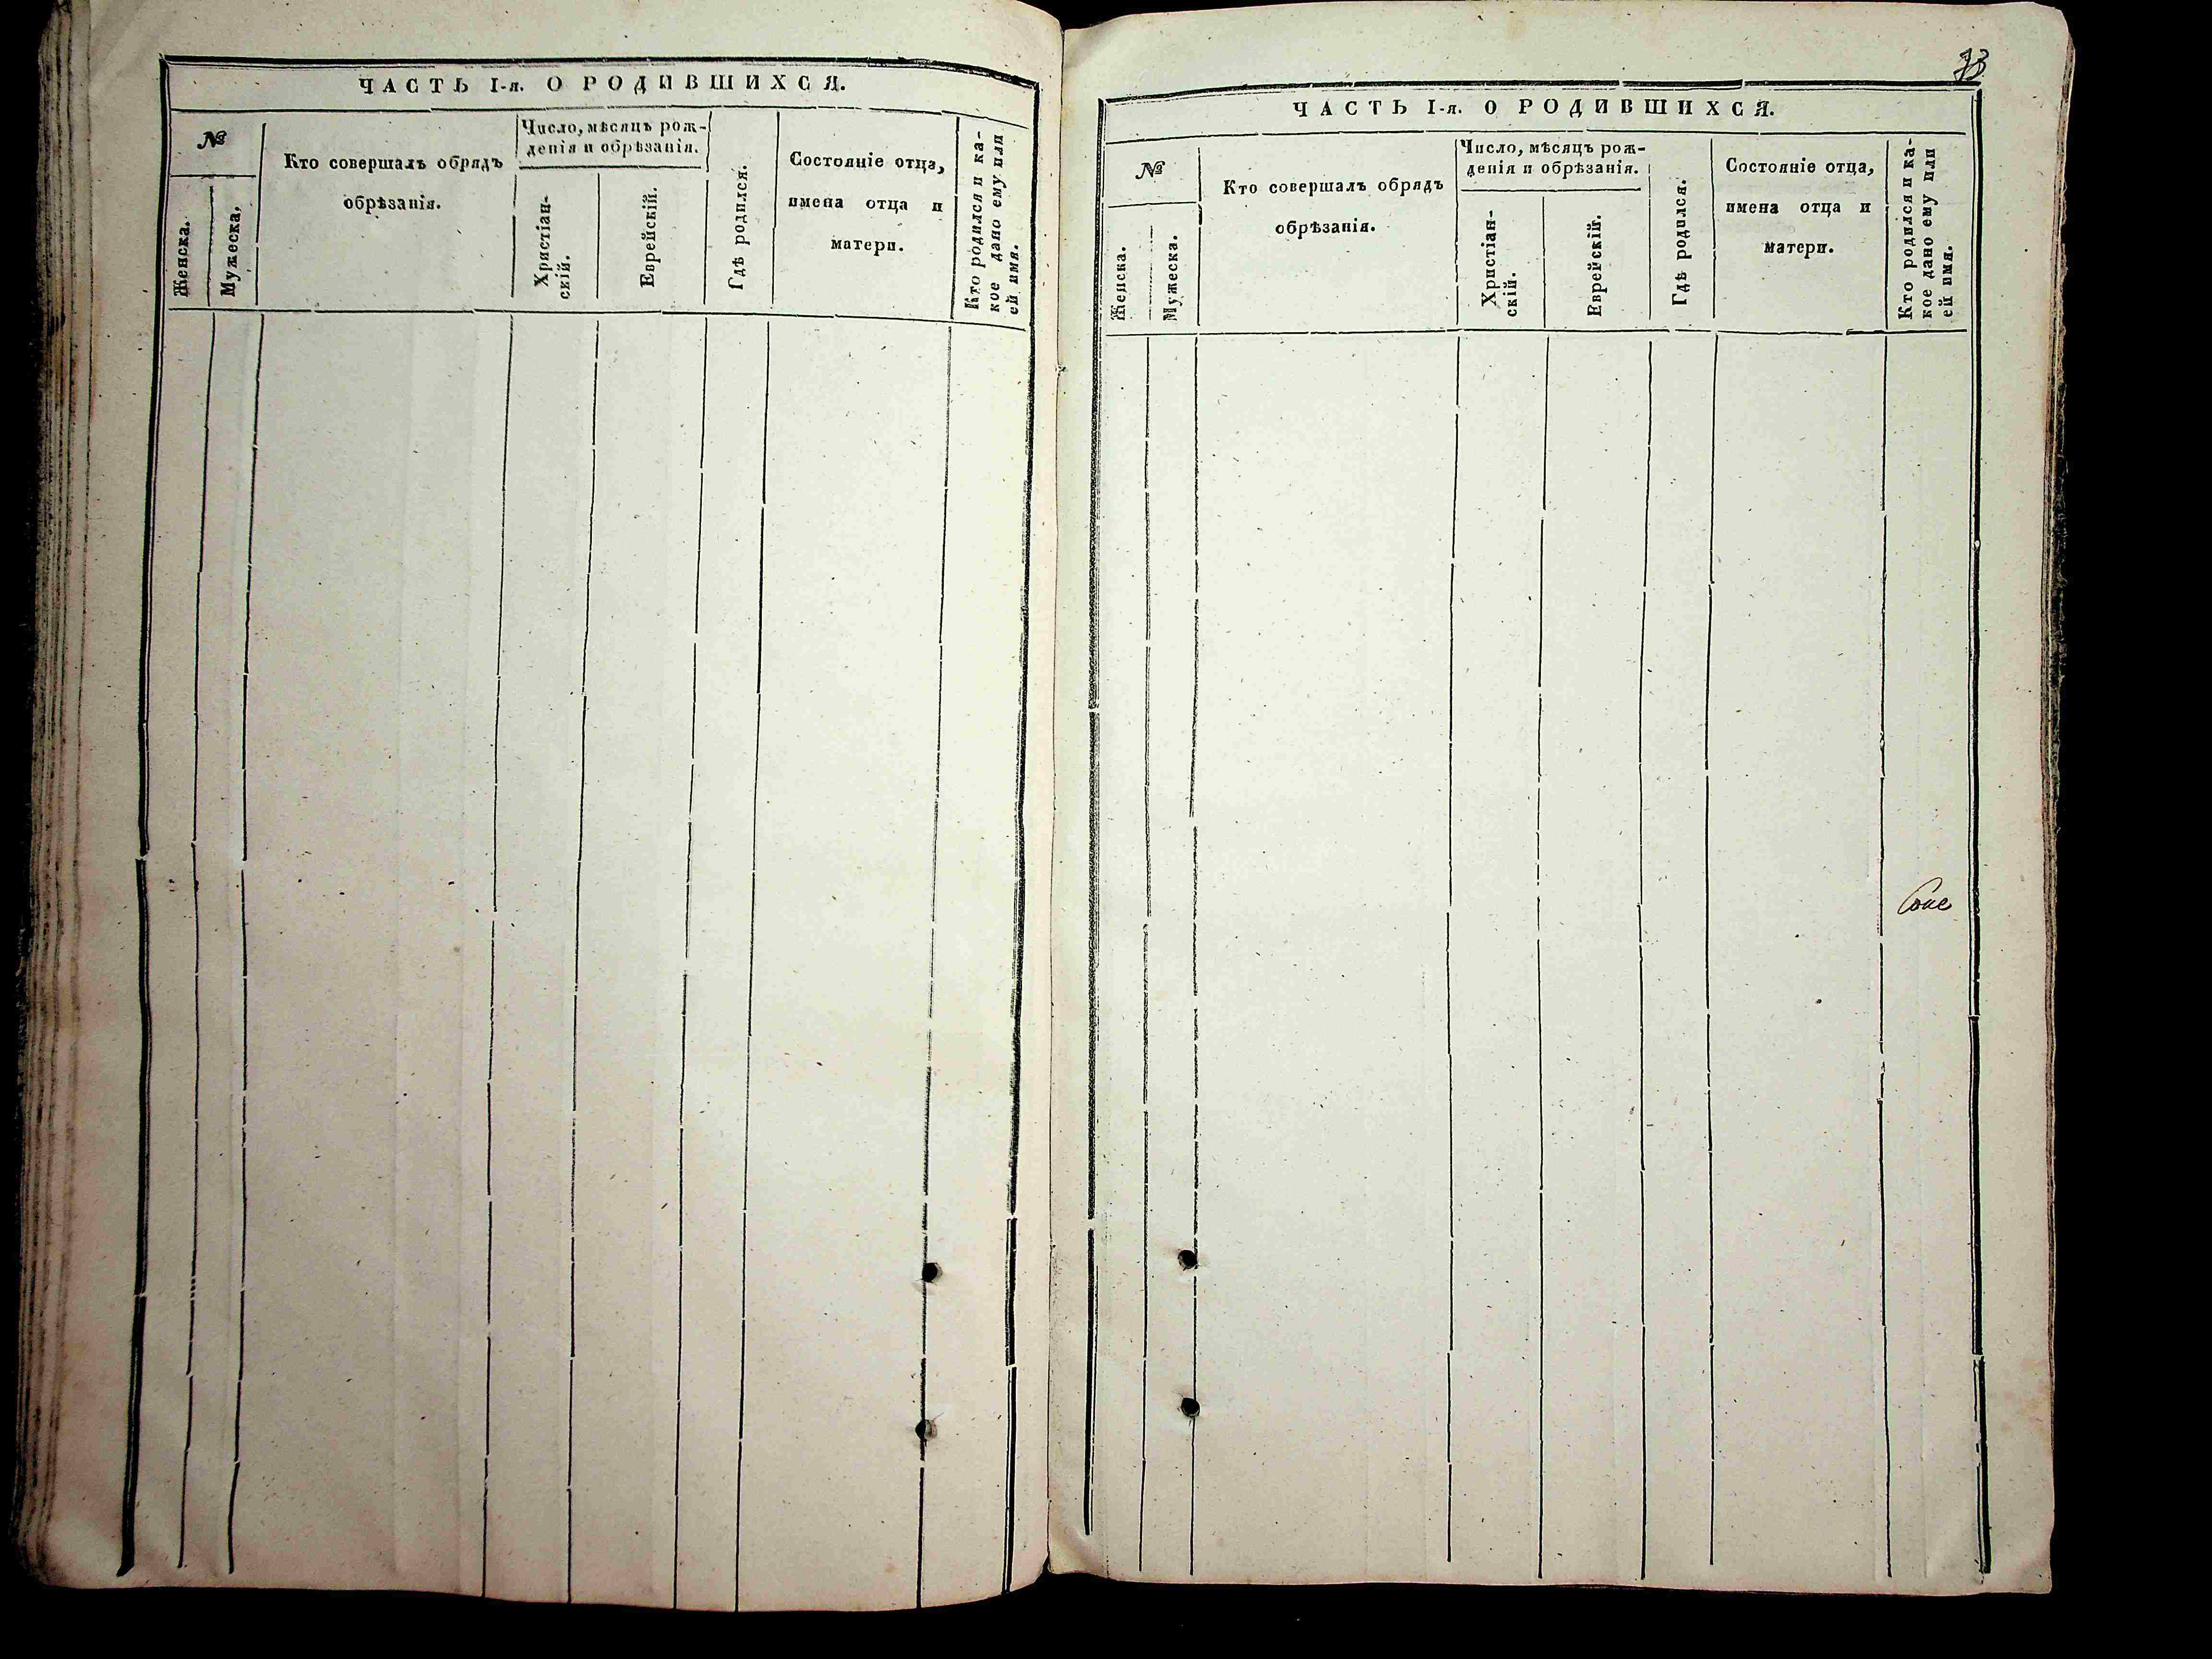 ЧАСТЬ I-я. О РОДИВШИХСЯ.
№
Женска.
Мужеска,
Кто совершалъ обрядъ
обрѣзанія.
Число, мѣсяцъ рож-
денія и обрѣзанія.
Христіан-
скій.
Еврейскій.
Гдѣ родился.
Состояніе отца,
имена отца и
матери.
Кто родился и ка-
кое дано ему или
ей имя.
ЧАСТЬ I-я. О РОДИВШИХСЯ.
№
Женска.
Мужеска.
Кто совершалъ обрядъ
обрѣзанія.
Число, мѣсяцъ рож-
денія и обрѣзанія.
Христіан-
скій.
Еврейскій.
Гдѣ родился.
Состояніе отца,
имена отца и
матери.
Кто родился и ка-
кое дано ему или
ей имя.